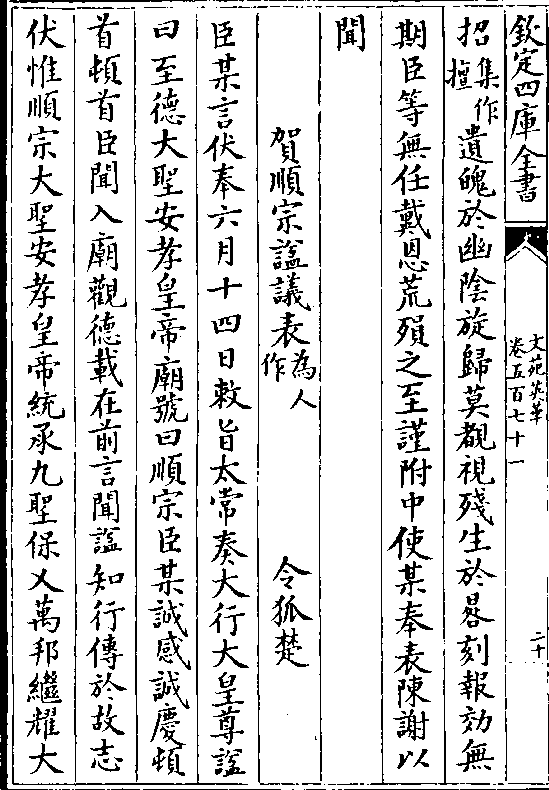 欽定四庫全書
文苑英華
卷五百七十一
二十
招集作擅遺魄於幽陰旋歸莫覩視殘生於晷刻報効無
期臣等無任戴恩荒殞之至謹附中使某奉表陳謝以
聞
賀順宗諡議表為人作
令狐楚
臣某言伏奉六月十四日敕旨太常奏大行大皇尊諡
曰至德大聖安孝皇帝廟號曰順宗臣某誠感誠慶頓
首頓首臣聞入廟觀德載在前言聞諡知行傳於故志
伏惟順宗大聖安孝皇帝統承九聖保乂萬邦繼耀大